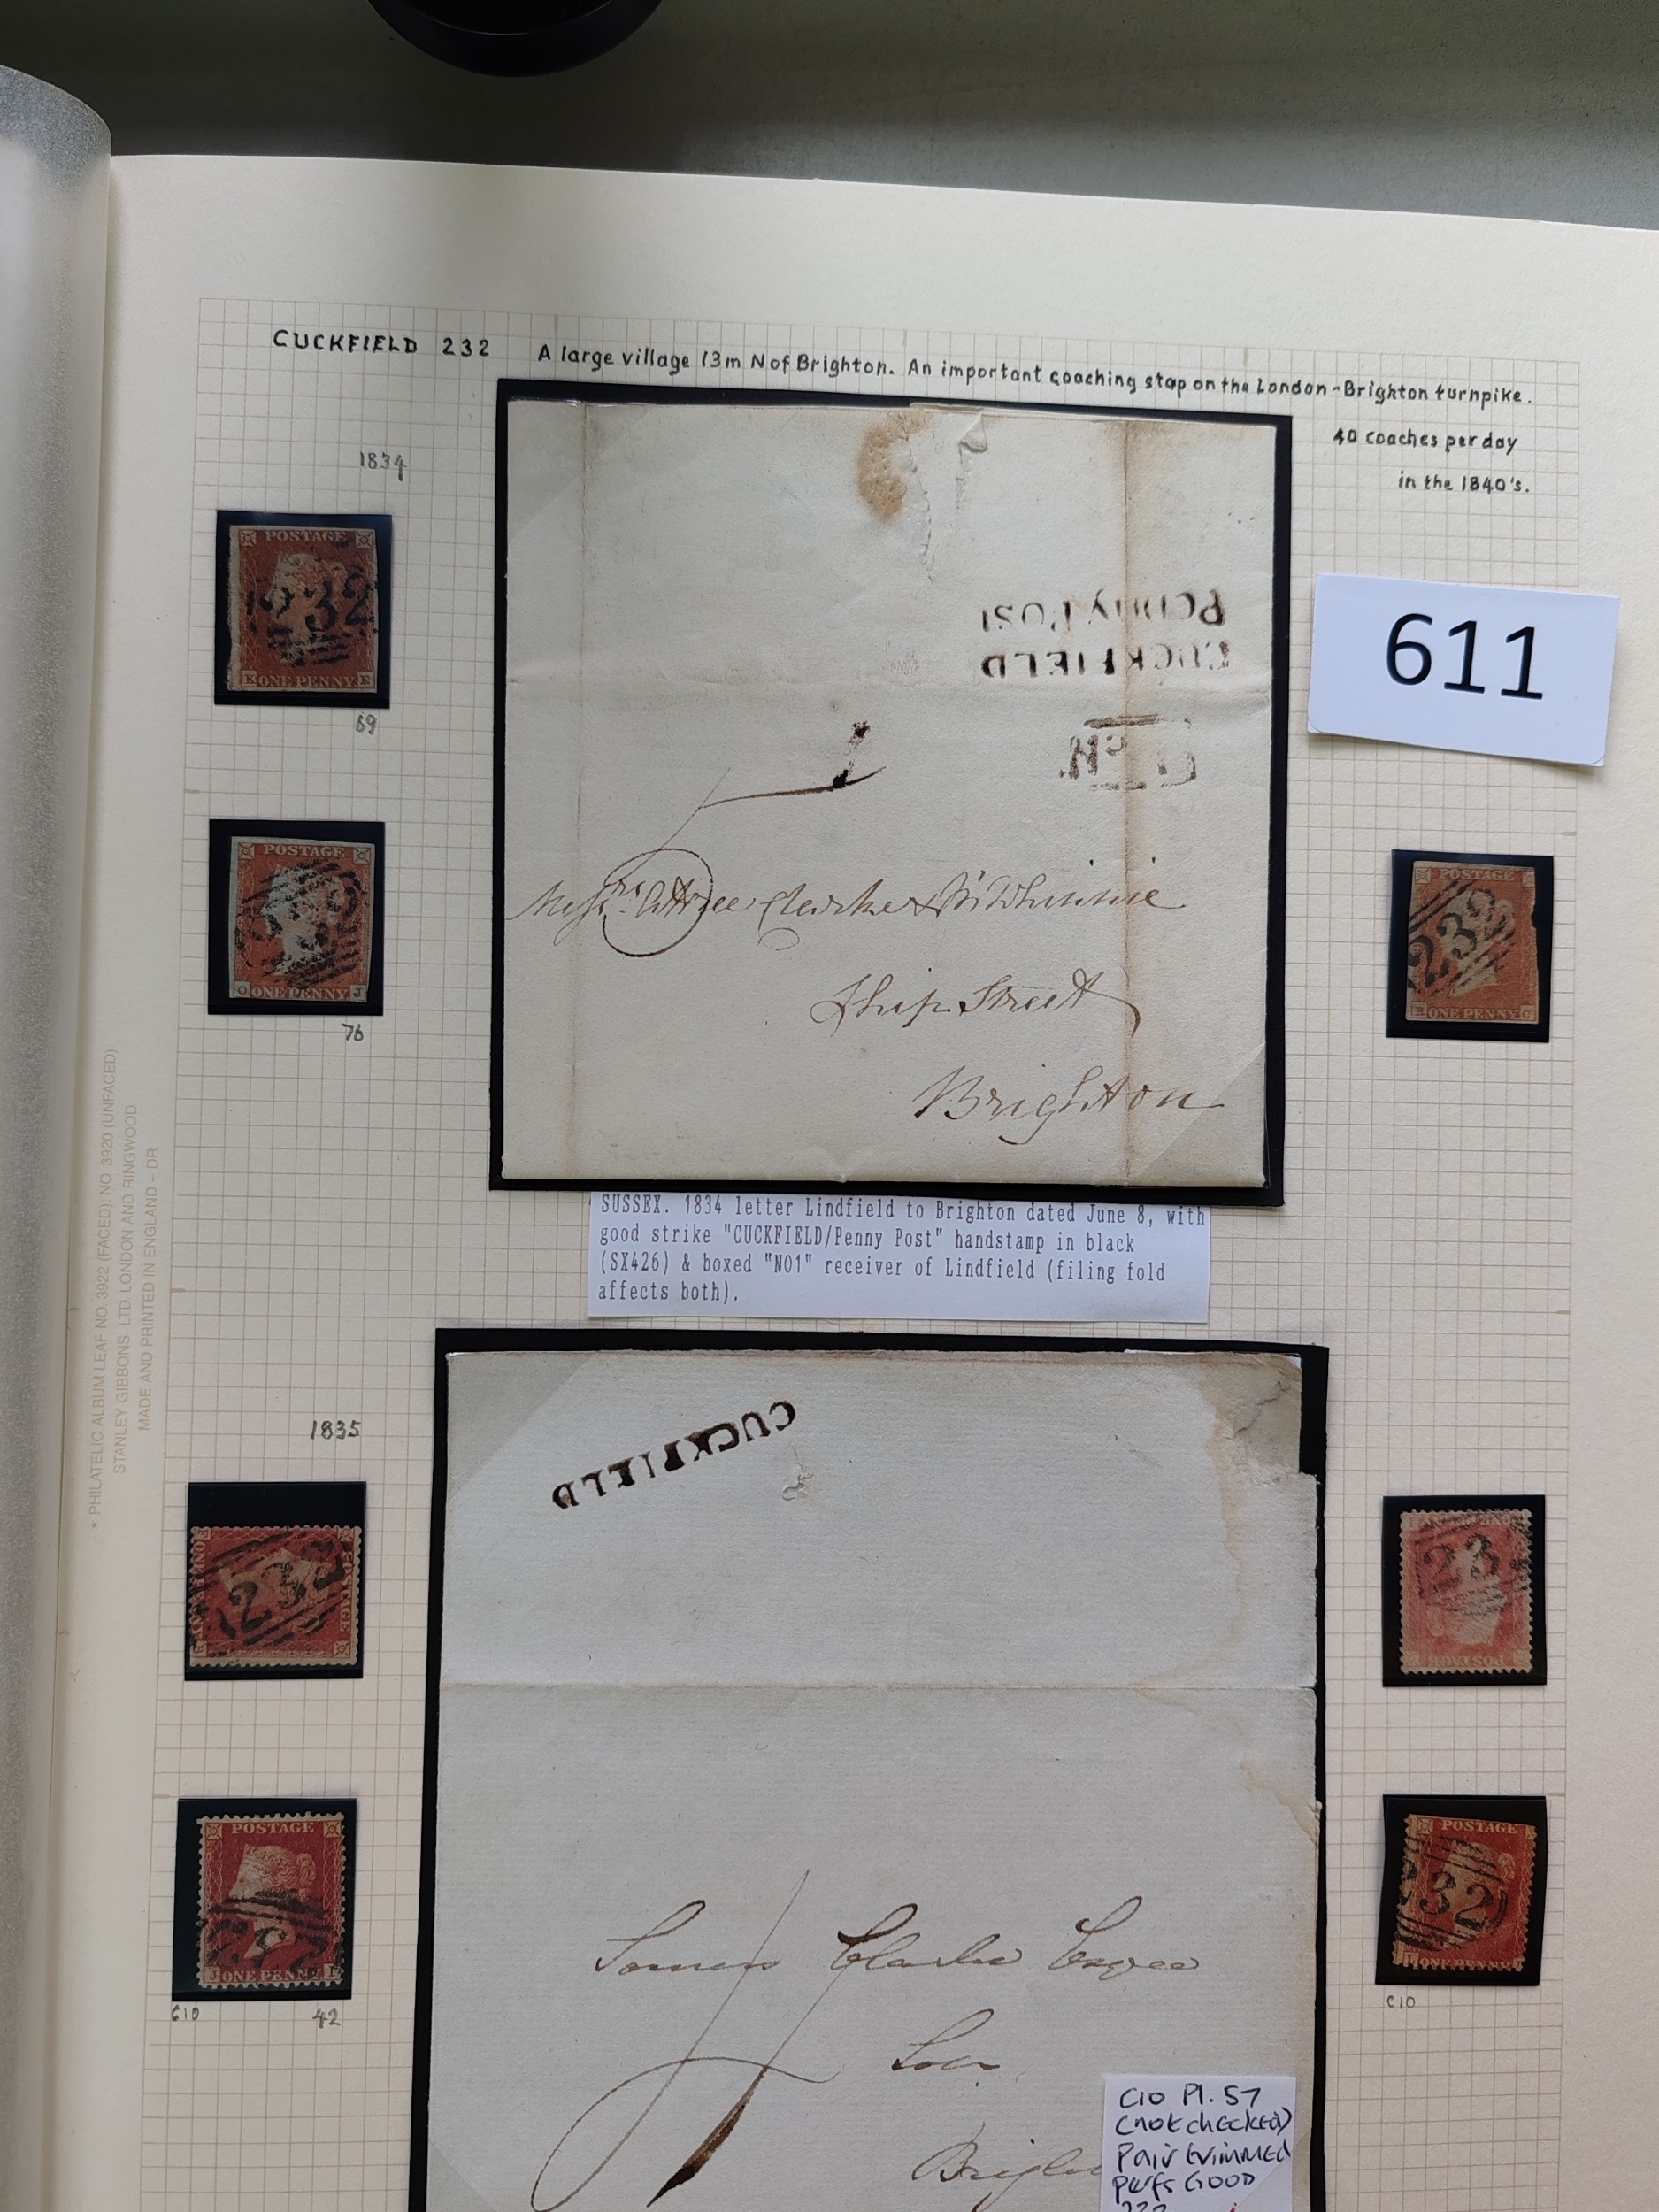 CUCKFIELD 232 A large village 13m N of Brighton. An important coaching stop on the London-Brighton turnpike.
40 coaches per day
in the 1840's.
1834
611
POSTAGE
232
K ONE PENNY
69
PENNY POST
CUCKFIELD
1
Ship Street
Brighton
POSTAGE
232
O ONE PENNY J
76
POSTAGE
232
ONE PENNY
SUSSEX. 1834 letter Lindfield to Brighton dated June 8, with
good strike "CUCKFIELD/Penny Post" handstamp in black
(SX426) & boxed "NO1" receiver of Lindfield (filing fold
affects both).
* PHILATELIC ALBUM LEAF NO. 3922 (FACED): NO. 3920 (UNFACED)
STANLEY GIBBONS LTD. LONDON AND RINGWOOD
MADE AND PRINTED IN ENGLAND - DR
1835
CUCKFIELD
POSTAGE
232
23
POSTAGE
POSTAGE
232
J ONE PENNY L
C10 42
POSTAGE
32
ONE PENNY
C10
Clarke
C10 Pl. 57
(not checked)
Pair trimmed
perfs Good
232